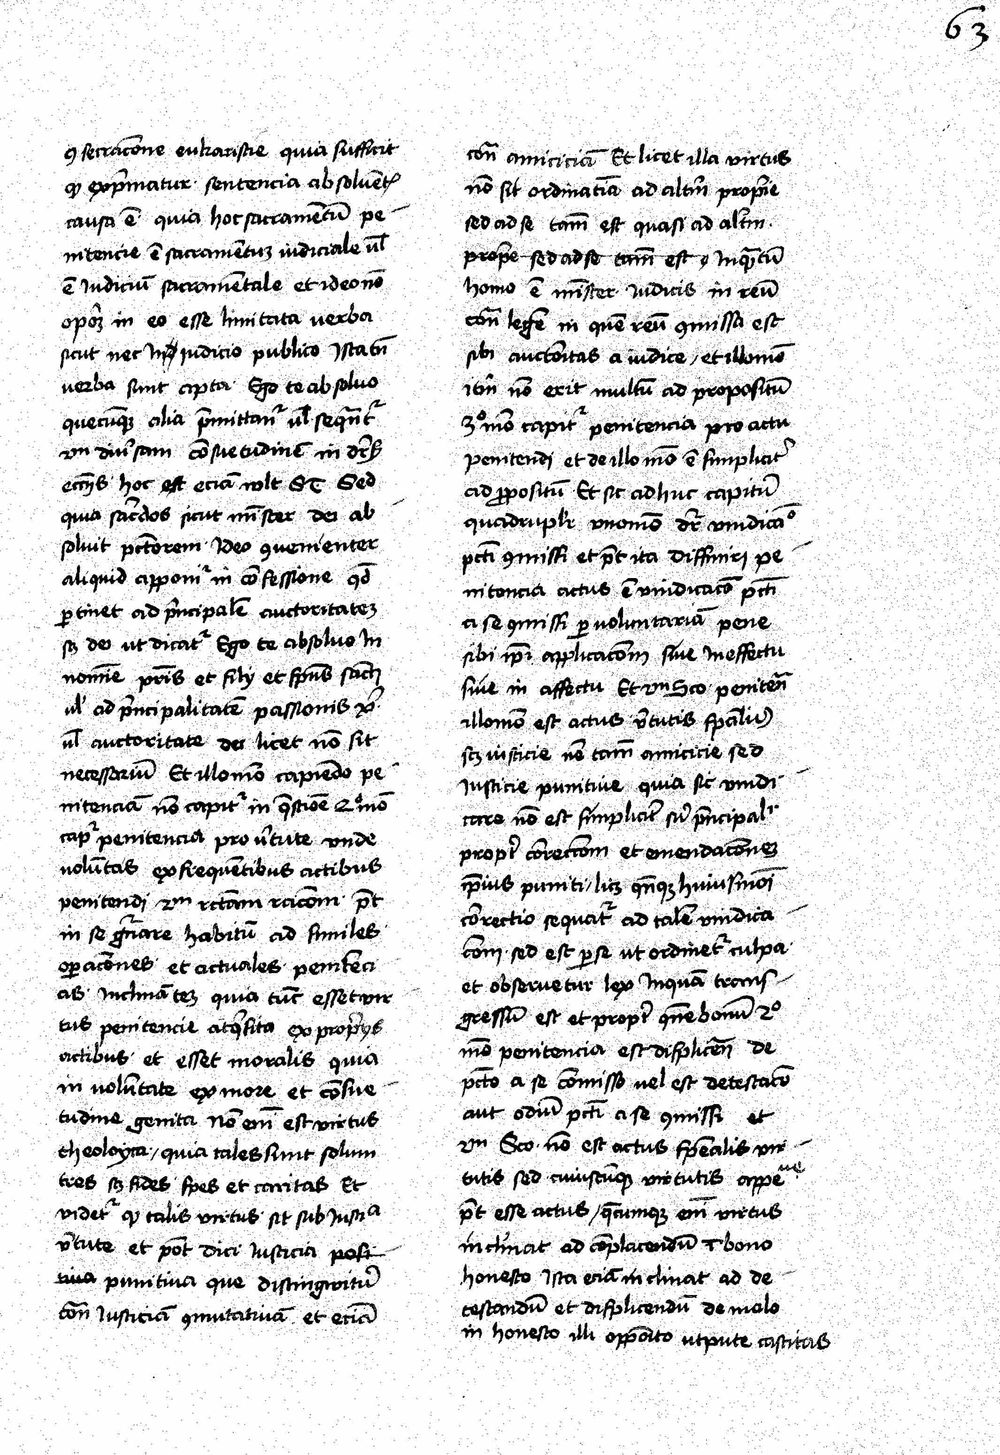 63
ꝯsecracōne eukaristie quia sufficit
qꝫ exp̄matur sentencia absoluent̉
causa ē quia hoc sacramentū pe-
nitencie ē sacramentuꝫ iudiciale ul̄
ē Iudiciū sacramentale et ideo nō
oportꝫ in eo esse limitata uerba
sicut nec in iudicio publico Ista tn̄
uerba sunt apta Ego te absoluo
quecūqꝫ alia p̄mittant̉ ul̄ sequāt̉
vn̄ diủsam cōsuetudinē in
eccījs hoc est eciā uolt S T Sed
quia sac̄dos sicut mīster dei ab
soluit pctōrem Ideo ꝯuenienter
aliquid apponit̉ in cōfessione qd̄
ꝑtinet ad p̄ncipalē auctoritateꝫ
sꝫ dei ut dicat̉ Ego te absoluo In
nomīe pr̄is et filij et sp̄us sācti
ul̄ ad p̄ncipalitatē passionis xp̄i
ul̄ auctoritate dei licet nō sit
necessariū Et illo mō capiēdo pe-
nitenciā nō capit̉ in q̄stiōe 2º mō
cap̉ penitencia pro v̄tute vnde
uolūtas ex frequētibus actibus
penitendi 2m̄ rc̄tam rc̄icom p̄t
in se gn̄are habitū ad similes
oꝑacōnes et actuales penitēci
as Inclināteꝫ quia tūc esset vir
tus penitencie acq̄sita ex proprijs
actibus et esset moralis quia
in uolūtate ex more et cōsue-
tudine genita Nō em̄ est virtus
theologica / quia tales sunt solum
tres sꝫ fides spes et caritas Et
videt̉ qꝫ talis virtus sit sub Iusticia
v̄tute et pōt dici Iusticia posi-
tiua punitiua que distinguitur
con̄ Iusticiā ꝯmutatiuā et eciā
con̄ amiciciā Et licet illa virtus
nō sit ordinatīa ad alt̄m propīe
sed ad se tam̄ est quasi ad alt̄m
prope sed ad se tam̄ est / Inqᷓtū
homo ē mīster Iudicis in reū
con̄ legē in quē reū ꝯmissa est
sibi auctoritas a iudice / et illo mō
itm̄ nō erit multū ad propositū
3º mō capit̉ penitencia pro actu
penitendi et de illo mō ē simplicit̉
ad ꝓpositū Et sic adhuc capitur̄
quadruplr̄ vno mō dr̄ vindicaᵒ
pcti ꝯmissi et p̄t ita diffiniri pe-
nitencia actus ē vindicacō pcti
a se ꝯmissi ꝑ voluntariā pene
sibi ip̄i applicacōm siue in effectu
siue in affectu Et vn̄ Sco penitēn
illo mō est actus v̄tutis sp̄alis
sꝫ iusticie nō tam̄ amicicie sed
Iusticie punitiue quia sic vindi-
care nō est simplicit̉ p̄ncipal̉
propt̉ correctōem et emendacōneꝫ
ip̄ius puniti / licꝫ qn̄qꝫ huiusmōi
correctio sequat̉ ad talē vindica-
cōm sed est per se ut ordinet̉ culpa
et obseruetur lex Inquā trans-
gressum est et propt̉ q̄ne bonū 2º
mō penitencia est displicēn̄ de
pcto a se cōmisso uel est detestacō
aut odiū pcti a se ꝯmissi et
vn̄ Sco nō est actus sp̄ealis vir-
tutis sed cuiuscūqꝫ virtutis appetitiue
p̄t esse actus / q̄cumqꝫ em̄ virtus
inclinat ad cōplacendū bono
honesto Ista eciā inclinat ad de-
testandū et displicendū de malo
in honesto illi opp̄oito utpute castitas